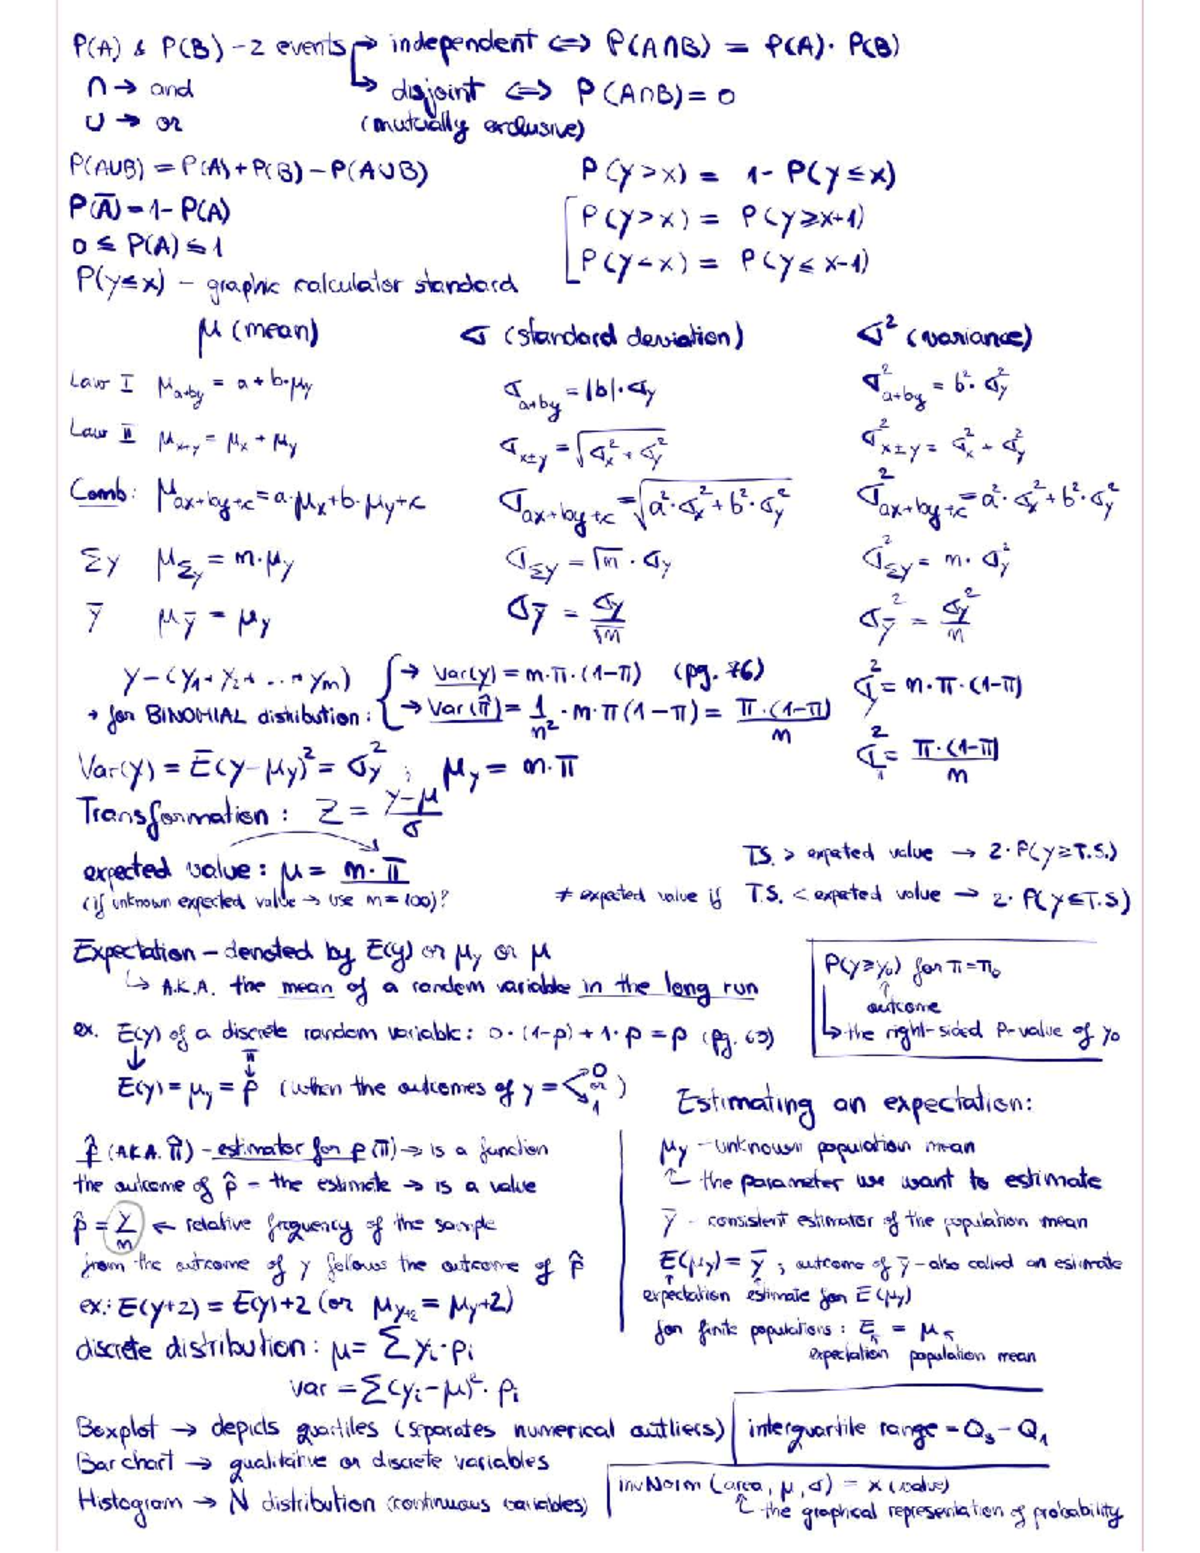 P(A) & P(B) - 2 events → independent ⟺ P(A∩B) = P(A)· P(B)
∩ → and ↳ disjoint ⟺ P(A∩B) = 0
∪ → or (mutually exclusive)
P(A∪B) = P(A) + P(B) - P(A∪B) P(y > x) = 1 - P(y ≤ x)
P(A̅) = 1 - P(A) P(y > x) = P(y ≥ x+1)
0 ≤ P(A) ≤ 1 P(y < x) = P(y ≤ x-1)
P(y ≤ x) - graphic calculator standard
μ (mean) σ (standard deviation) σ² (variance)
Law I μ_a+by = a + b·μy σ_a+by = |b|·σy σ²_a+by = b²·σ²y
Law II μ_x+y = μx + μy σ_x±y = √(σ²x + σ²y) σ²_x±y = σ²x + σ²y
Comb: μ_ax+by+c = a·μx + b·μy + c σ_ax+by+c = √(a²·σx² + b²·σy²) σ²_ax+by+c = a²·σx² + b²·σy²
Σy μ_Σy = m·μy σ_Σy = √m · σy σ²_Σy = m · σ²y
y̅ μy̅ = μy σy̅ = σy/√m σ²y̅ = σy²/n
y - (y1 + y2 + ... + ym) → Var(y) = m·π·(1-π) (pg. 76) σ² = n·π·(1-π)
→ for BINOMIAL distribution: → Var(π̂) = 1/n² · m·π(1-π) = π·(1-π)/m
σ² = π·(1-π)/m
Var(y) = E(y-μy)² = σ²y ; μy = m·π
Transformation: Z = (y-μ)/σ
expected value: μ = m·π T.S. > expeted value → 2·P(y ≥ T.S.)
(if unknown expected value → use m=100)? ≠ expected value if T.S. < expeted value → 2·P(y ≤ T.S)
Expectation - denoted by E(y) or μy or μ
↳ A.K.A. the mean of a random variable in the long run
P(y ≥ y0) for π = π0
outcome
↳ the right-sided P-value of y0
ex. E(y) of a discrete random variable: 0·(1-p) + 1·p = p (pg. 69)
π
E(y) = μy = p (when the outcomes of y = 0 or 1)
p̂ (A.K.A. π̂) - estimator for p (π) → is a function
the outcome of p̂ - the estimate → is a value
p̂ = y/m ← relative frequency of the sample
from the outcome of y follows the outcome of p̂
ex.: E(y+2) = E(y)+2 (or μy+2 = μy+2)
discrete distribution: μ = Σ yi·pi
var = Σ(yi-μ)²·pi
Estimating an expectation:
μy - unknown population mean
↳ the parameter we want to estimate
y̅ - consistent estimator of the population mean
E(μy) = y̅ ; outcome of y̅ - also called an estimate
expectation estimate for E(μy)
for finite populations: E = μ
expectation population mean
Boxplot → depicts quartiles (separates numerical outliers) interquartile range = Q3 - Q1
Bar chart → qualitative or discrete variables
Histogram → N distribution (continuous variables)
invNorm (area, μ, σ) = x (value)
↳ the graphical representation of probability